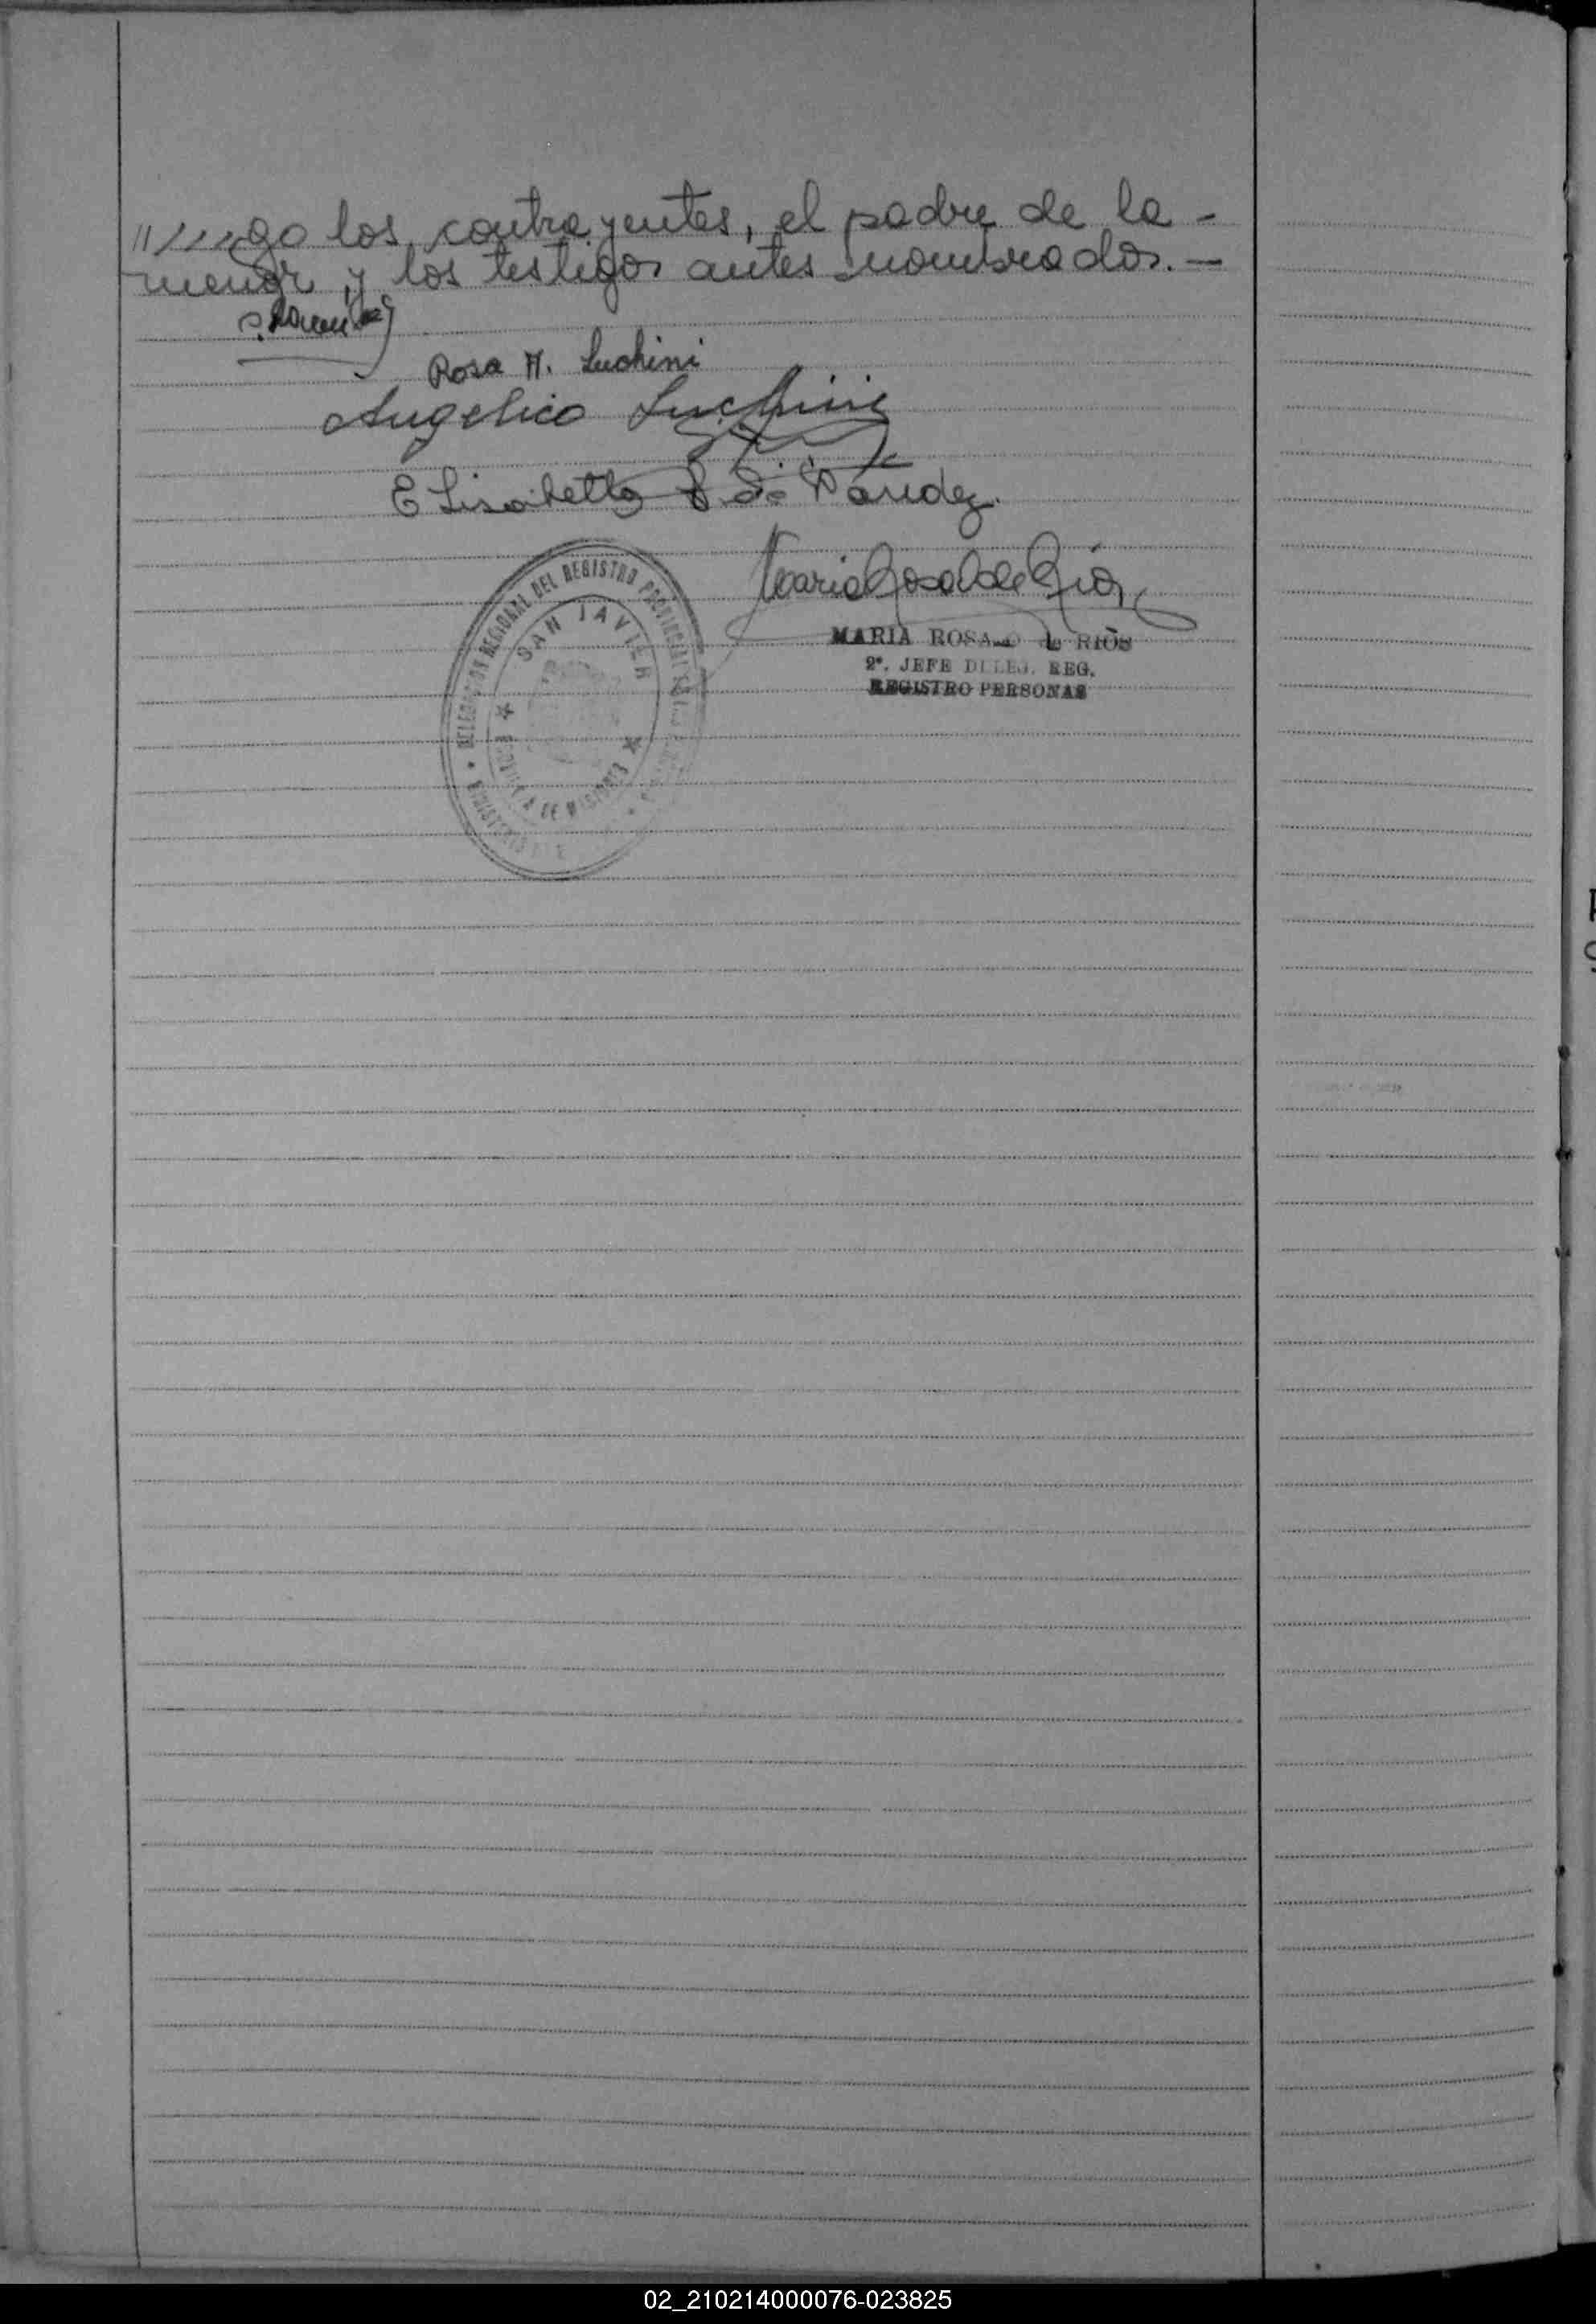 //////go los contrayentes, el padre de la -
menor y los testigos antes nombrados. -
Rosa H. Luchini
Angelica Luchini
Elisabetta
MARIA ROSA de RIOS
2°. JEFE DELEG. REG.
REGISTRO PERSONAS
DELEGACION REGIONAL DEL REGISTRO PROVINCIAL
SAN JAVIER
PROVINCIA DE MISIONES
02_210214000076-023825